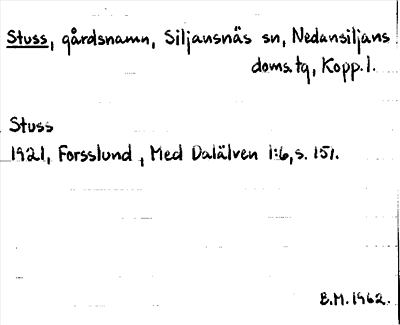 Stuss, gårdsnamn, Siljansnäs sn, Nedansiljans
doms.tg, Kopp.l.
Stuss
1921, Forsslund, Med Dalälven 1:6, s. 151.
B.M. 1962.